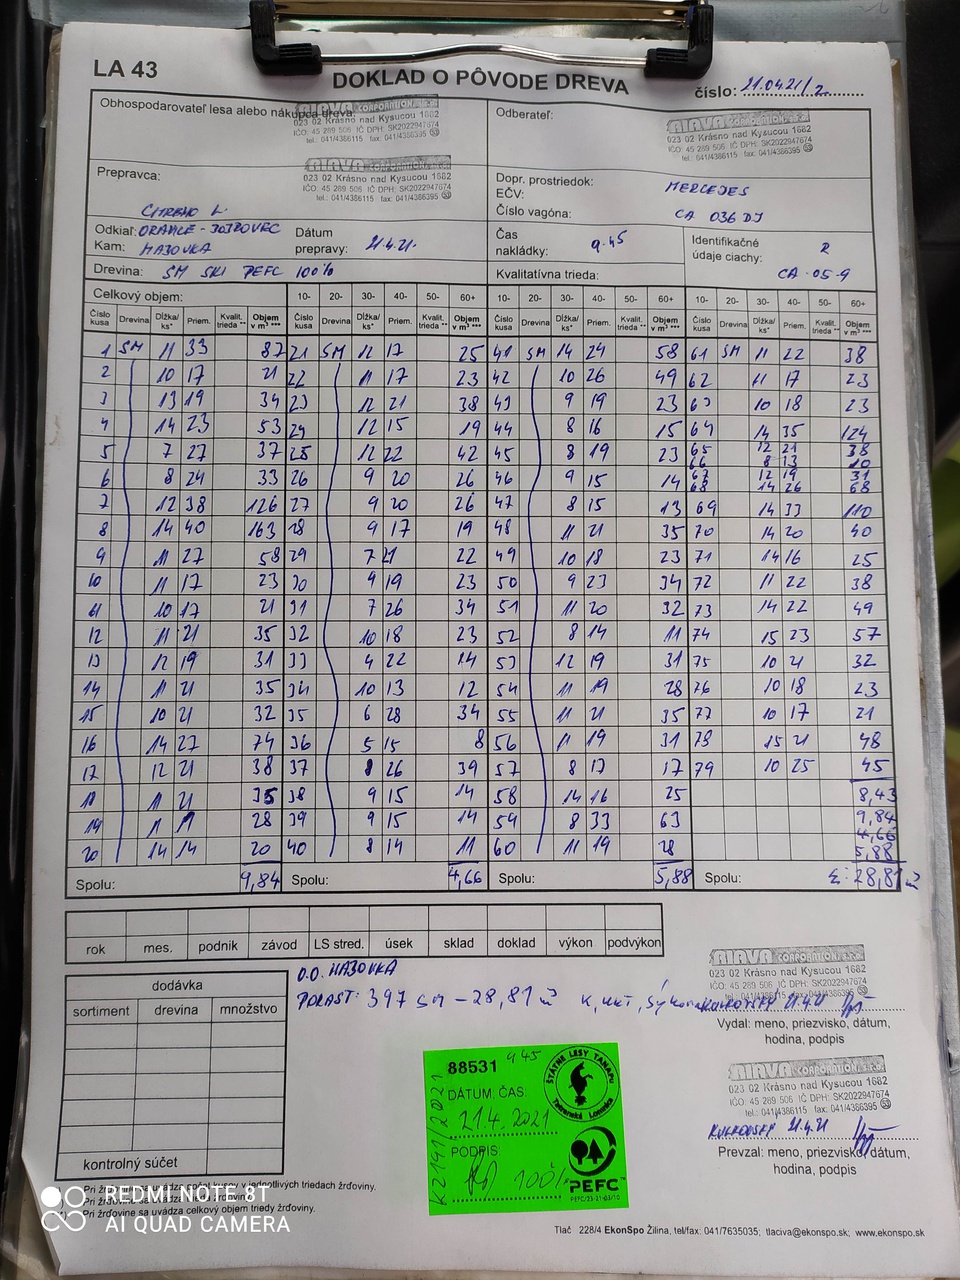 LA 43
DOKLAD O PÔVODE DREVA
číslo: 21.0421/2
Obhospodarovateľ lesa alebo nákupca dreva:
AIAVA CORPORATION, s.r.o.
023 02 Krásno nad Kysucou 1682
IČO: 45 289 506 IČ DPH: SK2022947674
tel.: 041/4386115 fax: 041/4386395
Odberateľ:
AIAVA CORPORATION, s.r.o.
023 02 Krásno nad Kysucou 1682
IČO: 45 289 506 IČ DPH: SK2022947674
tel.: 041/4386115 fax: 041/4386395
Prepravca:
AIAVA CORPORATION, s.r.o.
023 02 Krásno nad Kysucou 1682
IČO: 45 289 506 IČ DPH: SK2022947674
tel.: 041/4386115 fax: 041/4386395
Dopr. prostriedok: MERCEDES
EČV:
Číslo vagóna: CA 036 DJ
Odkiaľ:
Kam: HÁJOVKA
Dátum prepravy: 21.4.21.
Čas nakládky: 9.45
Identifikačné údaje ciachy: 2
CA-05-9
Drevina: SM SKI PEFC 100%
Kvalitatívna trieda:
Celkový objem: 10- 20- 30- 40- 50- 60+ 10- 20- 30- 40- 50- 60+ 10- 20- 30- 40- 50- 60+
Číslo kusa Drevina Dĺžka/ks* Priem. Kvalit. trieda ** Objem v m³ *** Číslo kusa Drevina Dĺžka/ks* Priem. Kvalit. trieda ** Objem v m³ *** Číslo kusa Drevina Dĺžka/ks* Priem. Kvalit. trieda ** Objem v m³ *** Číslo kusa Drevina Dĺžka/ks* Priem. Kvalit. trieda ** Objem v m³ ***
1 SM 11 33 87 21 SM 12 17 25 41 SM 14 24 58 61 SM 11 22 38
2 10 17 21 22 11 17 23 42 10 26 49 62 11 17 23
3 13 19 34 23 12 21 38 43 9 19 23 63 10 18 23
4 14 23 53 24 12 15 19 44 8 16 15 64 14 35 124
5 7 27 37 25 12 22 42 45 8 19 23 65 12 21 38
66 8 13 10
6 8 24 33 26 9 20 26 46 9 15 14 67 12 19 31
68 14 26 68
7 12 38 126 27 9 20 26 47 8 15 13 69 14 33 110
8 14 40 163 28 9 17 19 48 11 21 35 70 14 20 40
9 11 27 58 29 7 21 22 49 10 18 23 71 14 16 25
10 11 17 23 30 9 19 23 50 9 23 34 72 11 22 38
11 10 17 21 31 7 26 34 51 11 20 32 73 14 22 49
12 11 21 35 32 10 18 23 52 8 14 11 74 15 23 57
13 12 19 31 33 4 22 14 53 12 19 31 75 10 21 32
14 11 21 35 34 10 13 12 54 11 19 28 76 10 18 23
15 10 21 32 35 6 28 34 55 11 21 35 77 10 17 21
16 14 27 74 36 5 15 8 56 11 19 31 78 15 21 48
17 12 21 38 37 8 26 39 57 8 17 17 79 10 25 45
18 11 21 35 38 9 15 14 58 14 16 25 8,43
19 11 19 28 39 9 15 14 59 8 33 63 9,84
4,66
20 14 14 20 40 8 14 11 60 11 19 28 5,88
Spolu: 9,84 Spolu: 4,66 Spolu: 5,88 Spolu: Σ: 28,81
rok mes. podnik závod LS stred. úsek sklad doklad výkon podvýkon
O.O. HÁJOVKA
PORAST: 397 SM - 28,81
dodávka
sortiment drevina množstvo
kontrolný súčet
AIAVA CORPORATION, s.r.o.
023 02 Krásno nad Kysucou 1682
IČO: 45 289 506 IČ DPH: SK2022947674
21.4.21
Vydal: meno, priezvisko, dátum,
hodina, podpis
AIAVA CORPORATION, s.r.o.
023 02 Krásno nad Kysucou 1682
IČO: 45 289 506 IČ DPH: SK2022947674
tel.: 041/4386115 fax: 041/4386395
21.4.21
Prevzal: meno, priezvisko, dátum,
hodina, podpis
88531 9 45
ŠTÁTNE LESY TANAPu
Tatranská Lomnica
DÁTUM: ČAS:
21.4.2021
PODPIS:
100%
K2191/2021
PEFC
PEFC/23-21-03/10
Pri žrďovine sa uvádza počet kusov v jednotlivých triedach žrďoviny.
Pri žrďovine sa uvádza celkový objem triedy žrďoviny.
REDMI NOTE 8T
AI QUAD CAMERA
Tlač 228/4 EkonSpo Žilina, tel/fax: 041/7635035; tlaciva@ekonspo.sk; www.ekonspo.sk